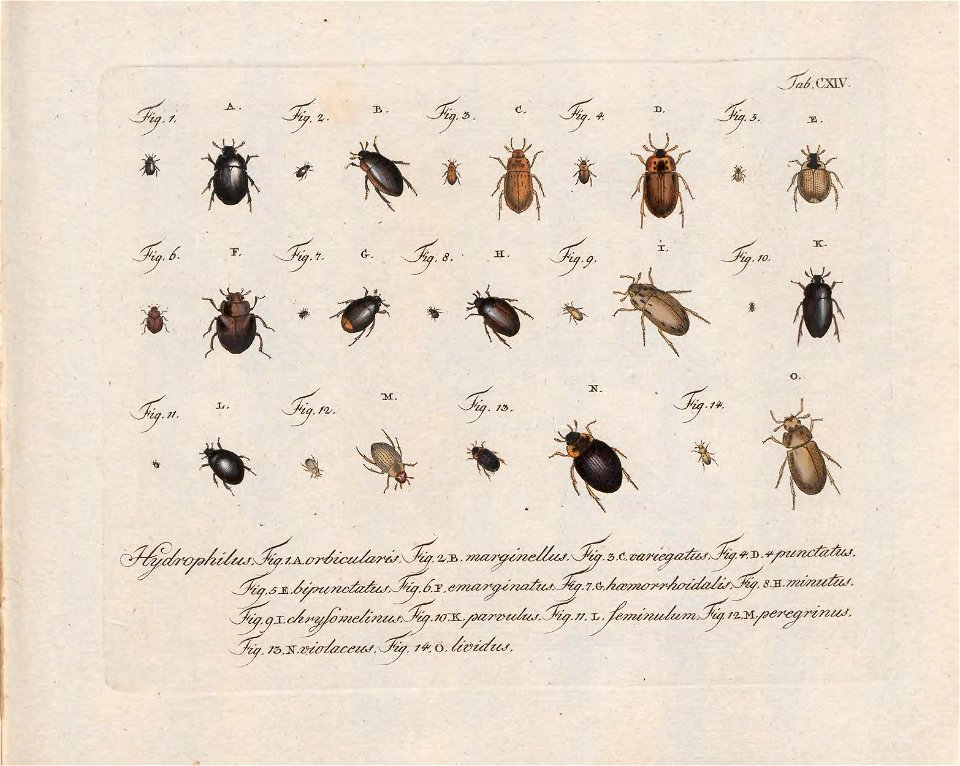 Tab. CXIV.
Fig. 1. A. Fig. 2. B. Fig. 3. C. Fig. 4. D. Fig. 5. E.
Fig. 6. F. Fig. 7. G. Fig. 8. H. Fig. 9. I. Fig. 10. K.
Fig. 11. L. Fig. 12. M. Fig. 13. N. Fig. 14. O.
Hydrophilus. Fig. 1. A. orbicularis. Fig. 2. B. marginellus. Fig. 3. C. variegatus. Fig. 4. D. 4 punctatus.
Fig. 5. E. bipunctatus. Fig. 6. F. emarginatus. Fig. 7. G. hæmorrhoidalis. Fig. 8. H. minutus.
Fig. 9. I. chryſomelinus. Fig. 10. K. parvulus. Fig. 11. L. ſeminulum. Fig. 12. M. peregrinus.
Fig. 13. N. violaceus. Fig. 14. O. lividus.